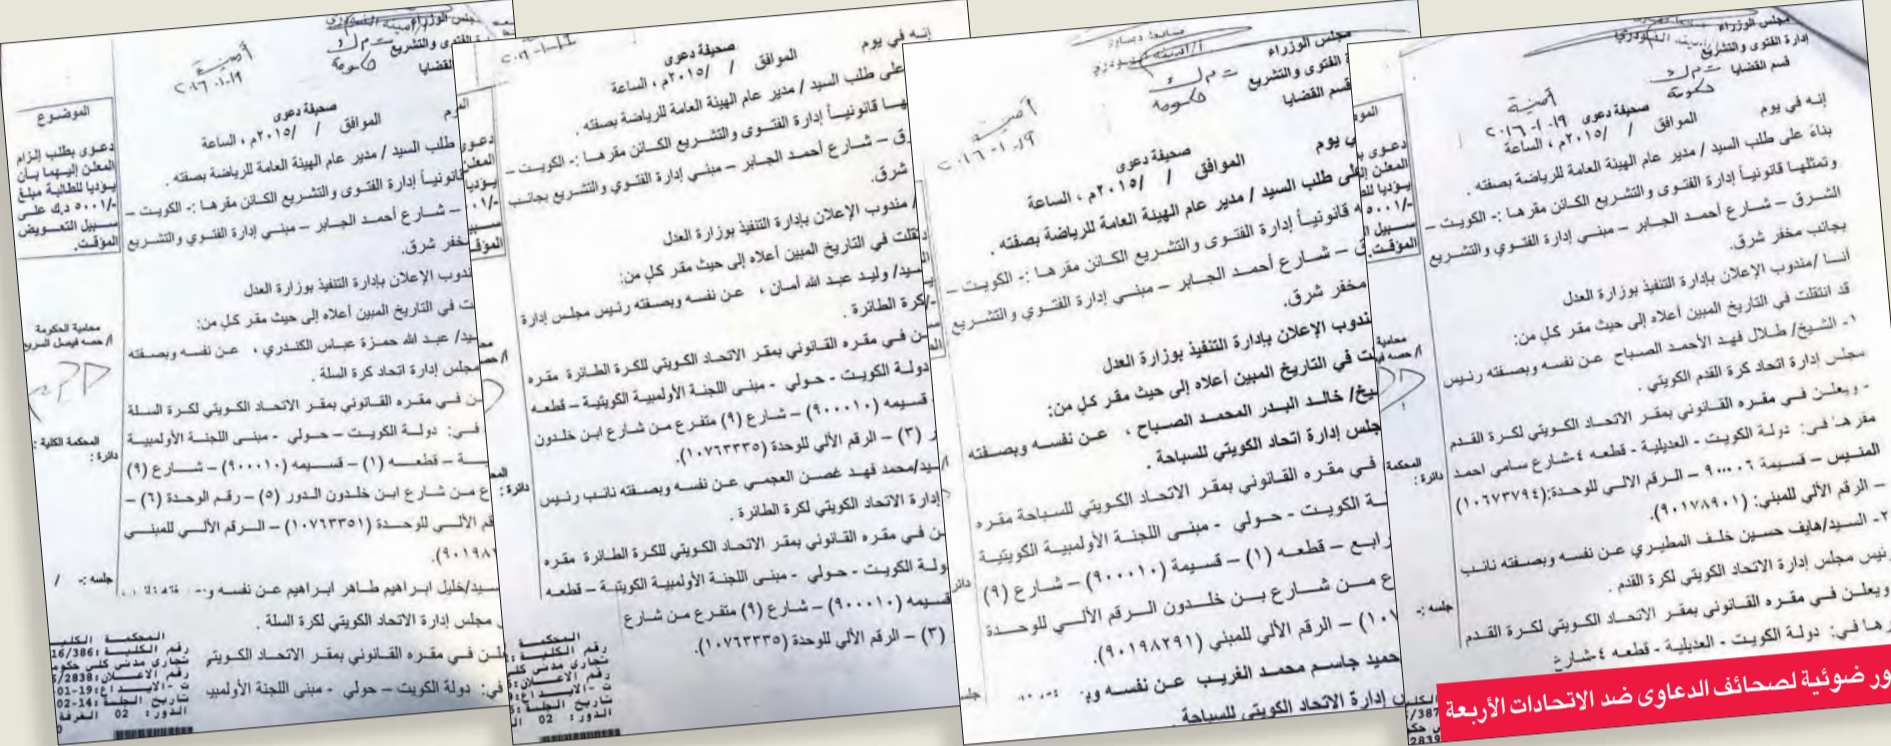 مجلس الوزراء
إدارة الفتوى والتشريع
قسم القضايا
أمينة
٢٠١٦-١-١٩
صحيفة دعوى
إنه في يوم الموافق / /٢٠١٥م ، الساعة
بناءً على طلب السيد / مدير عام الهيئة العامة للرياضة بصفته .
وتمثلها قانونياً إدارة الفتوى والتشريع الكائن مقرها :- الكويت –
الشرق – شارع أحمد الجابر – مبنى إدارة الفتوي والتشريع
بجانب مخفر شرق.
أنا /مندوب الإعلان بإدارة التنفيذ بوزارة العدل
قد انتقلت في التاريخ المبين أعلاه إلى حيث مقر كلٍ من:
١- الشيخ/ طلال فهد الأحمد الصباح عن نفسه وبصفته رئيس
مجلس إدارة اتحاد كرة القدم الكويتي .
- ويعلن في مقره القانوني بمقر الاتحاد الكويتي لكرة القدم
مقرها في: دولة الكويت - العديلية - قطعه ٤-شارع سامي احمد
المنيس – قسيمة ٩٠٠٠٠٦ – الرقم الالي للوحدة:(١٠٦٧٣٧٩٤)
– الرقم الألي للمبني: (٩٠١٧٨٩٠١).
٢- السيد/هايف حسين خلف المطيري عن نفسه وبصفته نائب
رئيس مجلس إدارة الاتحاد الكويتي لكرة القدم .
ويعلن في مقره القانوني بمقر الاتحاد الكويتي لكرة القدم
رها في: دولة الكويت - العديلية - قطعه ٤-شارع
محامية
المحكمة
دائرة :
جلسه :-
ور ضوئية لصحائف الدعاوى ضد الاتحادات الأربعة
مجلس الوزراء
ة الفتوى والتشريع
قسم القضايا
أمينة
٢٠١٦-١-١٩
صحيفة دعوى
ي يوم الموافق / /٢٠١٥م ، الساعة
على طلب السيد / مدير عام الهيئة العامة للرياضة بصفته .
قانونياً إدارة الفتوى والتشريع الكائن مقرها :- الكويت –
ق – شارع أحمد الجابر – مبني إدارة الفتوي والتشريع
مخفر شرق.
ندوب الإعلان بإدارة التنفيذ بوزارة العدل
ت في التاريخ المبين أعلاه إلى حيث مقر كلٍ من:
يخ/ خالد البدر المحمد الصباح ، عن نفسه وبصفته
جلس إدارة اتحاد الكويتي للسباحة .
في مقره القانوني بمقر الاتحاد الكويتي للسباحة مقره
ة الكويت - حولي - مبنى اللجنة الأولمبية الكويتية
رابع – قطعه (١) – قسيمة (٩٠٠٠١٠) – شارع (٩)
ع من شارع بن خلدون الرقم الألي للوحدة
(١٠٧ – الرقم الألي للمبني (٩٠١٩٨٢٩١).
حميد جاسم محمد الغريب عن نفسه
إدارة الاتحاد الكويتي للسباحة .
صحيفة دعوى
إنه في يوم الموافق / /٢٠١٥م ، الساعة
على طلب السيد / مدير عام الهيئة العامة للرياضة بصفته .
ها قانونياً إدارة الفتوى والتشريع الكائن مقرها :- الكويت –
رق – شارع أحمد الجابر – مبني إدارة الفتوي والتشريع بجانب
شرق.
/ مندوب الإعلان بإدارة التنفيذ بوزارة العدل
نتقلت في التاريخ المبين أعلاه إلى حيث مقر كلٍ من:
السيد/ وليد عبد الله أمان ، عن نفسه وبصفته رئيس مجلس إدارة
كرة الطائرة .
ن في مقره القانوني بمقر الاتحاد الكويتي للكرة الطائرة مقره
دولة الكويت - حولي - مبنى اللجنة الأولمبية الكويتية – قطعه
قسيمه (٩٠٠٠١٠) – شارع (٩) متفرع من شارع ابن خلدون
ر (٣) – الرقم الألي للوحدة (١٠٧٦٣٣٣٥).
يد/محمد فهد غصن العجمي عن نفسه وبصفته نائب رئيس
إدارة الاتحاد الكويتي لكرة الطائرة .
ن في مقره القانوني بمقر الاتحاد الكويتي للكرة الطائرة مقره
ولة الكويت - حولي - مبنى اللجنة الأولمبية الكويتية – قطعه
قسيمه (٩٠٠٠١٠) – شارع (٩) متفرع من شارع
(٣) – الرقم الألي للوحدة (١٠٧٦٣٣٣٥).
مجلس الوزراء
ة الفتوى والتشريع
القضايا
أمينة
٢٠١٦-١-١٩
صحيفة دعوى
يوم الموافق / /٢٠١٥م ، الساعة
طلب السيد / مدير عام الهيئة العامة للرياضة بصفته .
قانونياً إدارة الفتوى والتشريع الكائن مقرها :- الكويت –
– شارع أحمد الجابر – مبني إدارة الفتوي والتشريع
مخفر شرق.
ندوب الإعلان بإدارة التنفيذ بوزارة العدل
ت في التاريخ المبين أعلاه إلى حيث مقر كلٍ من:
يد/ عبد الله حمزة عباس الكندري ، عن نفسه وبصفته
مجلس إدارة اتحاد كرة السلة .
ن في مقره القانوني بمقر الاتحاد الكويتي لكرة السلة
في: دولة الكويت – حولي - مبنى اللجنة الأولمبية
ية – قطعه (١) – قسيمه (٩٠٠٠١٠) – شارع (٩)
ع من شارع ابن خلدون الدور (٥) – رقم الوحدة (٦) –
قم الألي للوحدة (١٠٧٦٣٣٥١) – الرقم الألي للمبني
سيد/خليل ابراهيم طاهر ابراهيم عن نفسه
مجلس إدارة الاتحاد الكويتي لكرة السلة .
لن في مقره القانوني بمقر الاتحاد الكويتي
في: دولة الكويت – حولي - مبنى اللجنة الأولمبي
الموضوع
دعوى بطلب إلزام
المعلن إليهما بأن
يؤديا للطالبة مبلغ
٥٠٠١/- د.ك على
سبيل التعويض
المؤقت.
محامية الحكومة
أ/ حصه فيصل السريع
المحكمة الكلية :
دائرة :
جلسه :- /